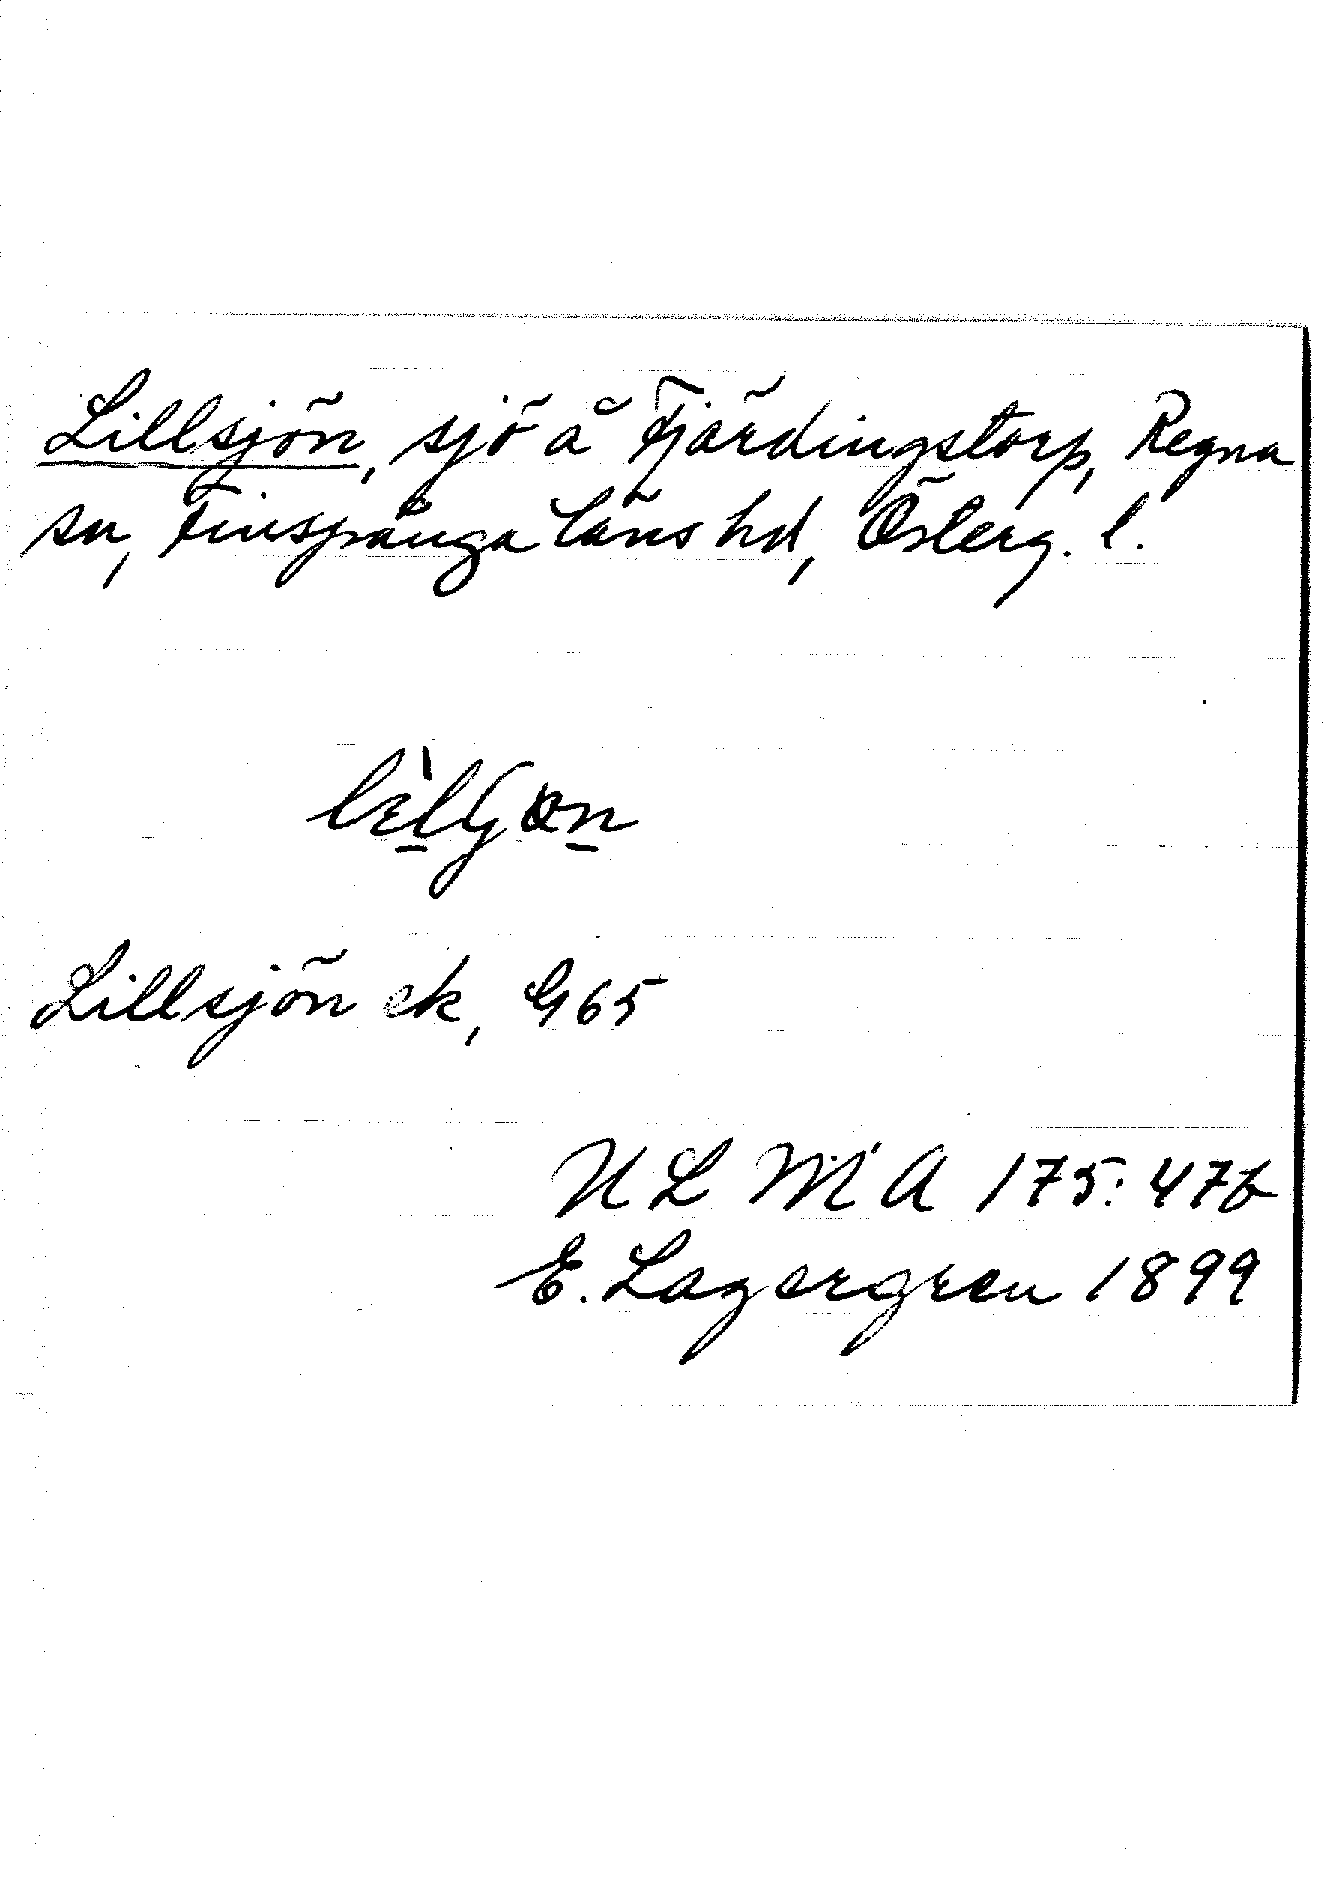 Lillsjön, sjö å Fjärdingstorp, Regna
sn, Finspånga läns hd, Österg. l.
Lillsjön ek, G65
ULMA 175:47b
E. Lagergren 1899